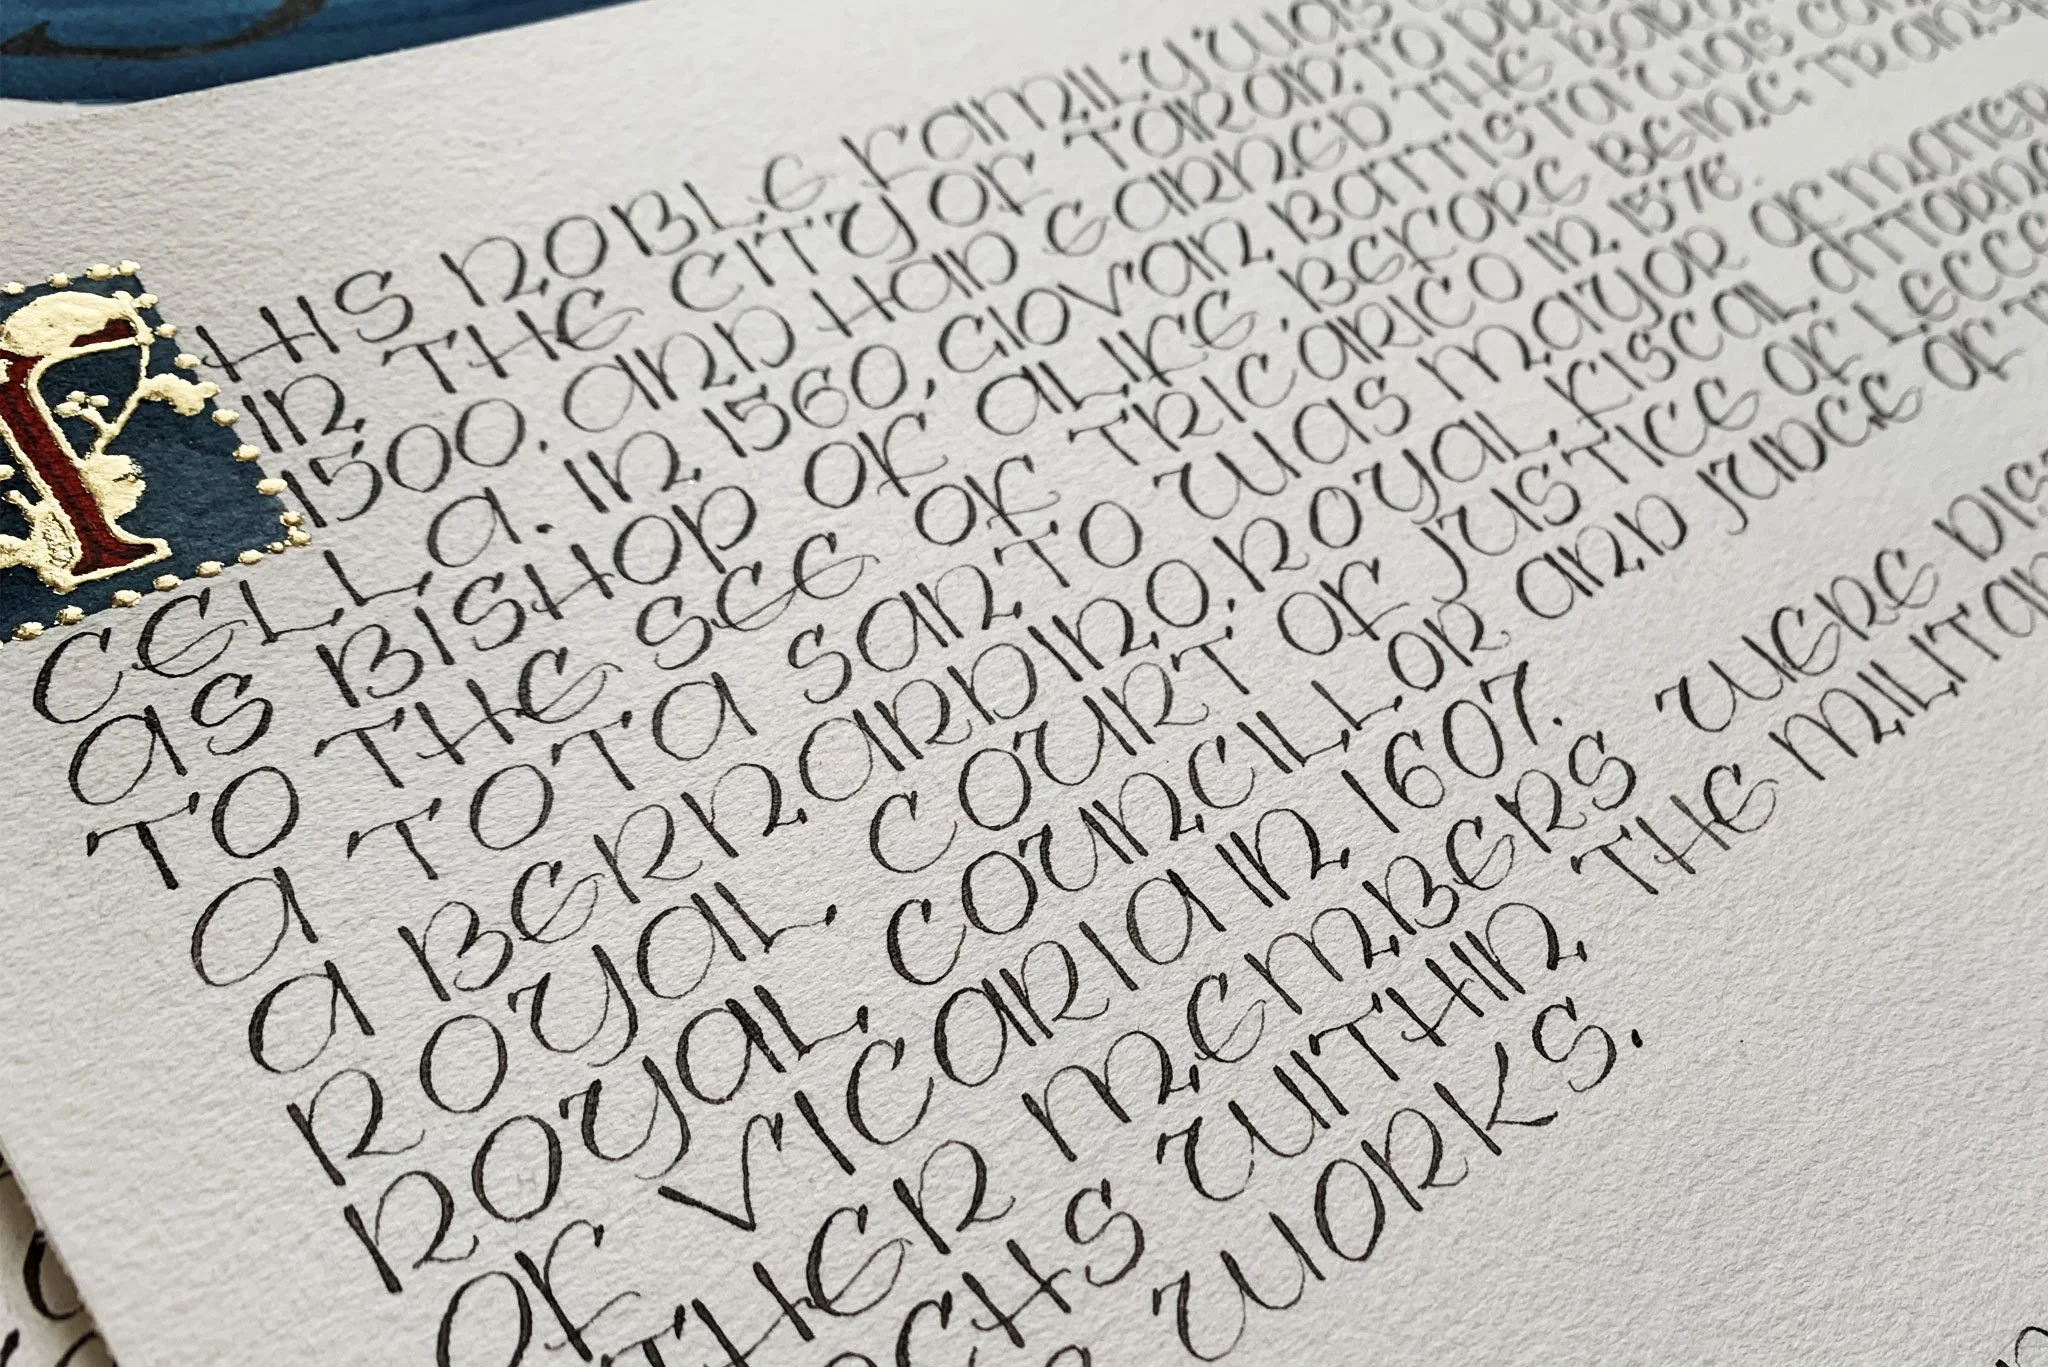 THIS NOBLE FAMILY WAS
IN THE CITY OF TARANTO
1500. AND HAD EARNED THE
CELLA. IN 1560, GIOVAN BATTISTA WAS
AS BISHOP OF ALIFE, BEFORE BEING
TO THE SEE OF TRICARICO IN 1576.
A TOTA SANTO WAS MAYOR OF
A BERNARDINO, ROYAL FISCAL
ROYAL COURT OF JUSTICE OF LECCE
ROYAL COUNCILLOR AND JUDGE OF
OF VICARIA IN 1607.
THER MEMBERS WERE
CHS WITHIN THE
WORKS.